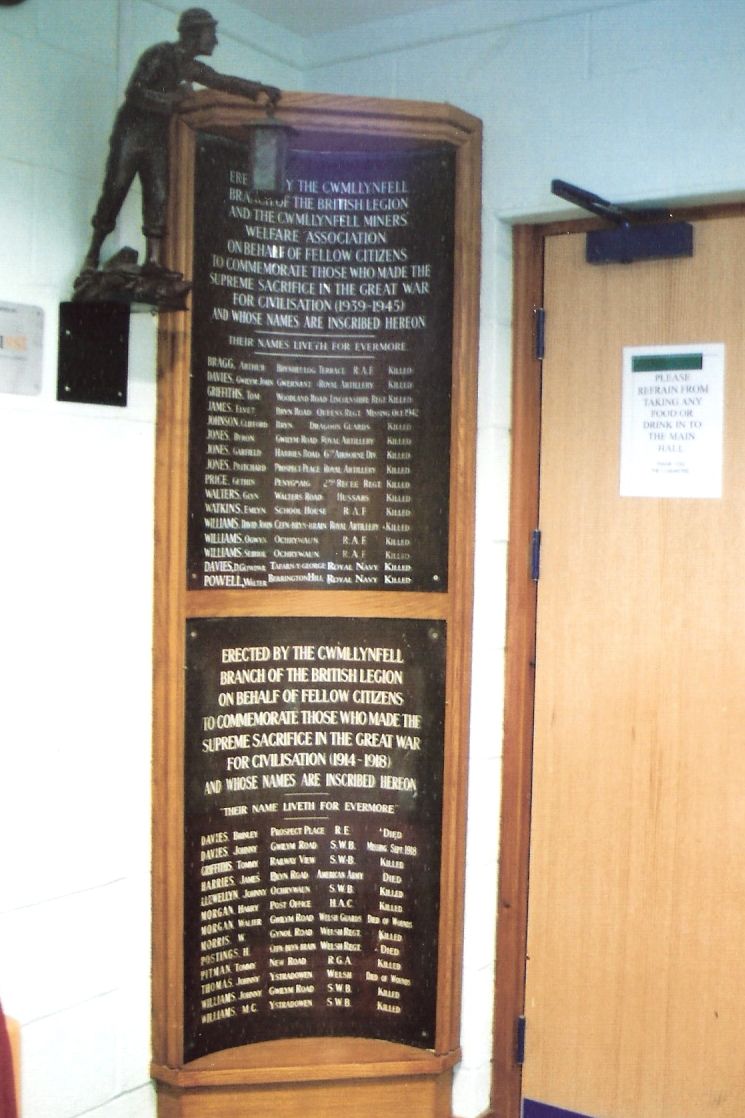 ERE Y THE CWMLLYNFELL
BRANCH OF THE BRITISH LEGION
AND THE CWMLLYNFELL MINERS'
WELFARE ASSOCIATION
ON BEHALF OF FELLOW CITIZENS
TO COMMEMORATE THOSE WHO MADE THE
SUPREME SACRIFICE IN THE GREAT WAR
FOR CIVILISATION (1939-1945)
AND WHOSE NAMES ARE INSCRIBED HEREON
THEIR NAMES LIVETH FOR EVERMORE
BRAGG, ARTHUR TERRACE R.A.F KILLED
DAVIES, GWILYM JOHN GWERNANT ROYAL ARTILLERY KILLED
GRIFFITHS, TOM WOODLAND ROAD LINCOLNSHIRE REGT KILLED
JAMES, ELVET BRYN ROAD QUEENS REGT MISSING OCT 1942
JOHNSON, CLIFFORD BRYN DRAGOON GUARDS KILLED
JONES, BYRON GWILYM ROAD ROYAL ARTILLERY KILLED
JONES, GARFIELD HARRIES ROAD 6TH AIRBORNE DIV. KILLED
JONES, PRITCHARD PROSPECT PLACE ROYAL ARTILLERY KILLED
PRICE, GETHIN 2ND RECEE REGT KILLED
WALTERS, GLYN WALTERS ROAD HUSSARS KILLED
WATKINS, EMLYN SCHOOL HOUSE R.A.F KILLED
WILLIAMS, DAVID JOHN GLYN-BRYN-BRAIN ROYAL ARTILLERY KILLED
WILLIAMS, OGWYN OCHRYWAUN R.A.F KILLED
WILLIAMS, OCHRYWAUN R.A.F KILLED
DAVIES, D. TAFARN-Y-GEORGE ROYAL NAVY KILLED
POWELL, WALTER BERRINGTON HILL ROYAL NAVY KILLED
ERECTED BY THE CWMLLYNFELL
BRANCH OF THE BRITISH LEGION
ON BEHALF OF FELLOW CITIZENS
TO COMMEMORATE THOSE WHO MADE THE
SUPREME SACRIFICE IN THE GREAT WAR
FOR CIVILISATION (1914-1918)
AND WHOSE NAMES ARE INSCRIBED HEREON
"THEIR NAME LIVETH FOR EVERMORE"
DAVIES, BRINLEY PROSPECT PLACE R.E. DIED
DAVIES, JOHNNY GWILYM ROAD S.W.B. MISSING SEPT. 1918
GRIFFITHS, TOMMY RAILWAY VIEW S.W.B. KILLED
HARRIES, JAMES BRYN ROAD AMERICAN ARMY DIED
LLEWELLYN, JOHNNY OCHRYWAUN S.W.B. KILLED
MORGAN, HARRY POST OFFICE H.A.C. KILLED
MORGAN, WALTER GWILYM ROAD WELSH GUARDS DIED OF WOUNDS
MORRIS, W. GYNOL ROAD WELSH REGT. KILLED
POSTINGS, H. GLYN-BRYN-BRAIN WELSH REGT. DIED
PITMAN, TOMMY NEW ROAD R.G.A. KILLED
THOMAS, JOHNNY YSTRADOWEN WELSH DIED OF WOUNDS
WILLIAMS, JOHNNY GWILYM ROAD S.W.B. KILLED
WILLIAMS, M.C. YSTRADOWEN S.W.B. KILLED
PLEASE
REFRAIN FROM
TAKING ANY
FOOD OR
DRINK IN TO
THE MAIN
HALL